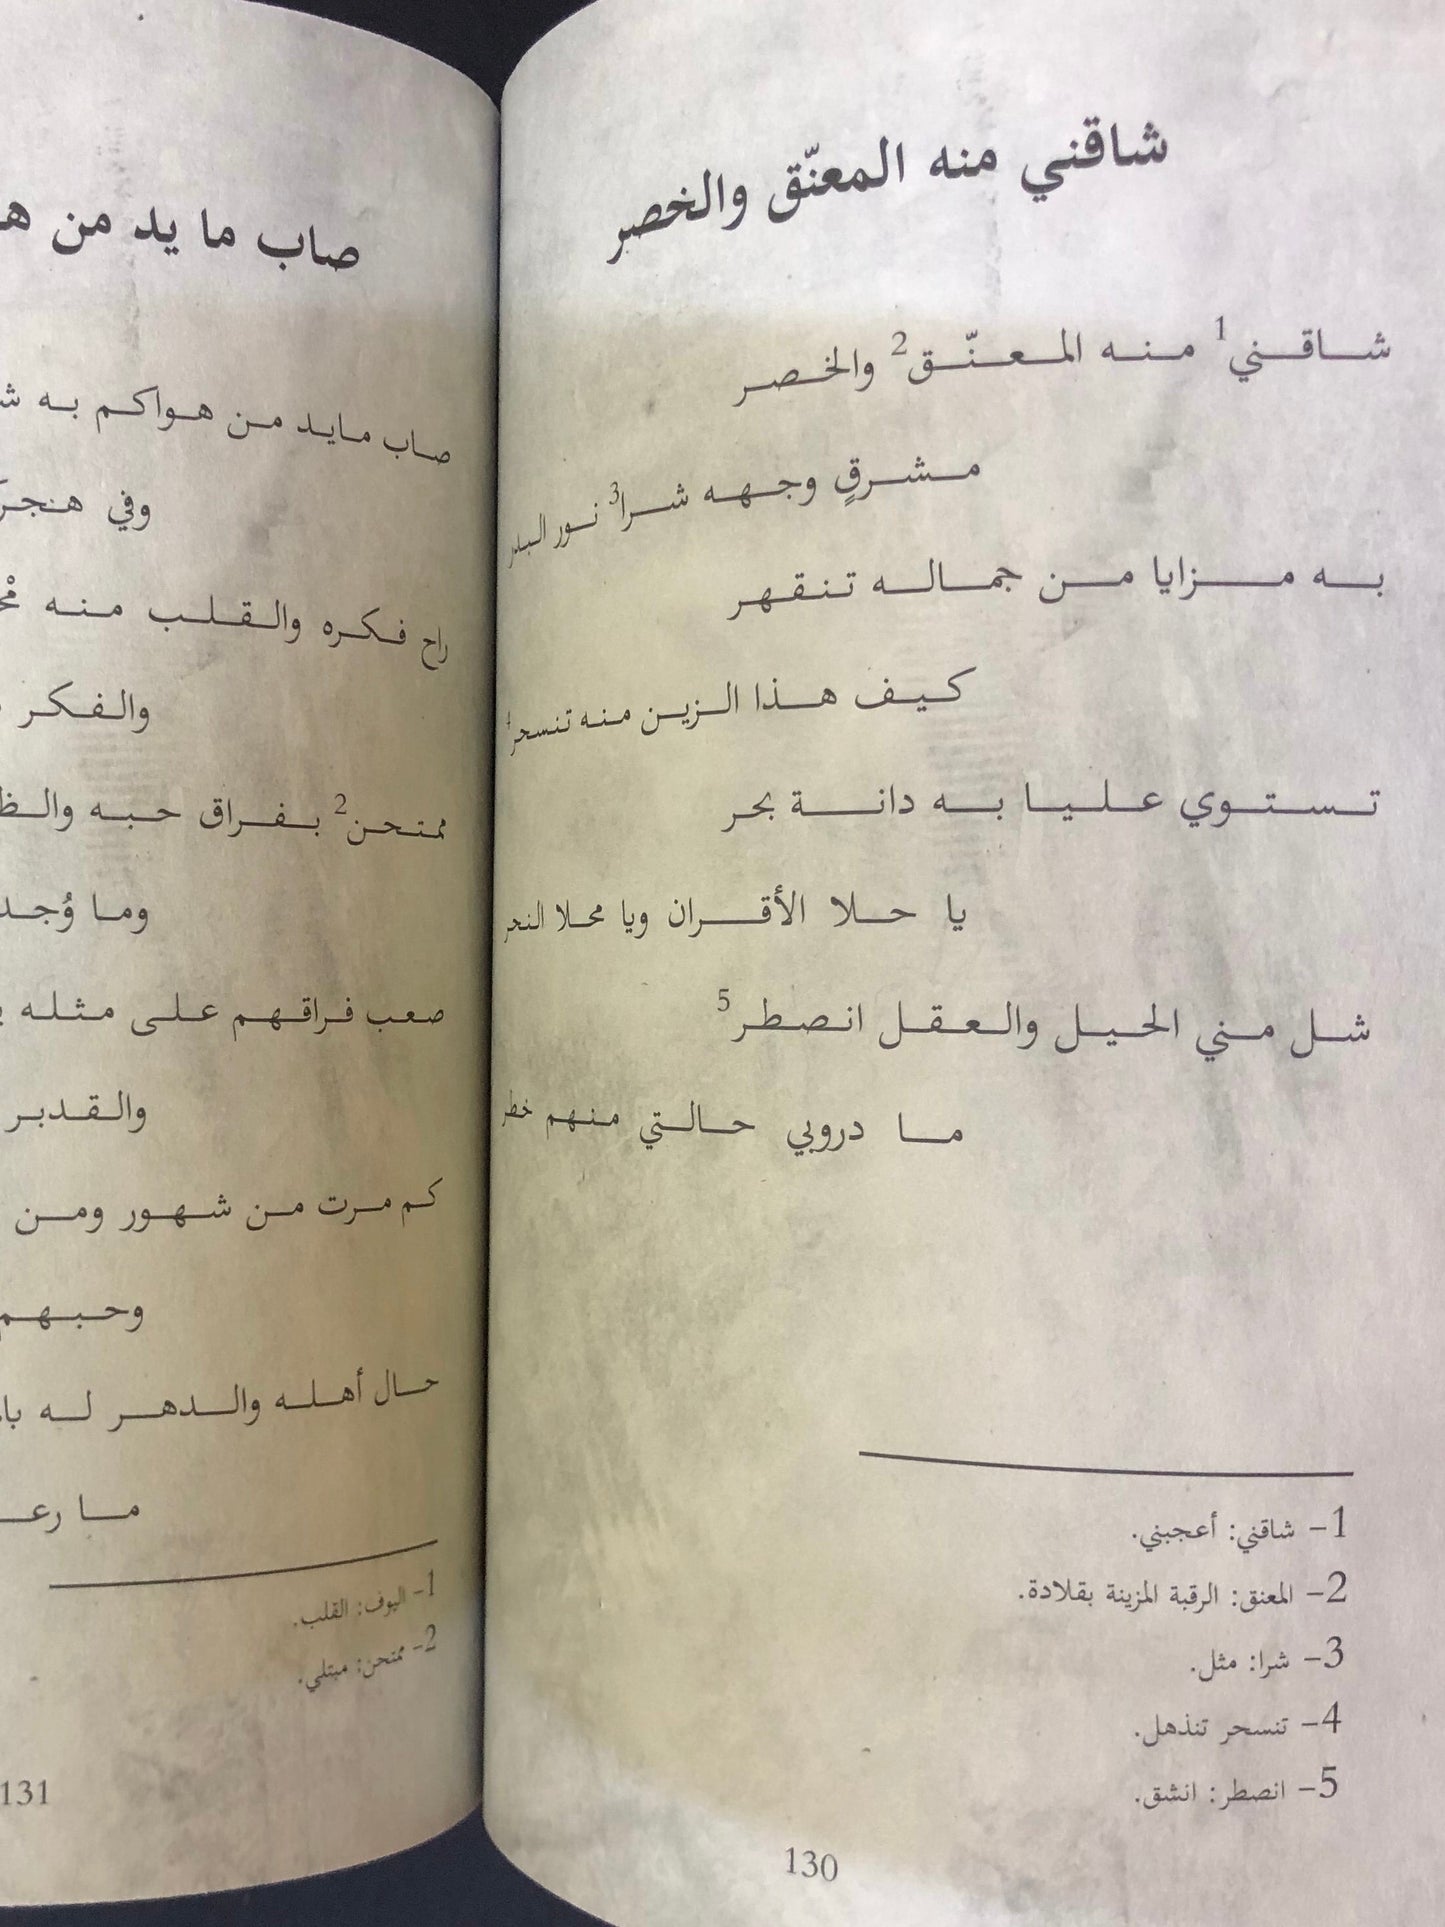 شاقني منه المعنّق والخصر
شاقني1 منه المعنّق2 والخصر
مشرقٍ وجهه شرا3 نور البدر
به مزايا من جماله تنقهر
كيف هذا الزين منه تنسحر4
تستوي عليا به دانة بحر
يا حلا الأقران ويا محلا النحر
شل مني الحيل والعقل انصطر5
ما دروبي حالتي منهم خطر
1- شاقني: أعجبني.
2- المعنق: الرقبة المزينة بقلادة.
3- شرا: مثل.
4- تنسحر تنذهل.
5- انصطر: انشق.
130
صاب ما يد من
صاب مايد من هواكم به
وفي
راح فكره والقلب منه
والفكر
ممتحن2 بفراق حبه
وما وُجد
صعب فراقهم على مثله
والقدبر
كم مرت من شهور ومن
وحبهم
حال أهله والدهر له
ما
1- اليوف: القلب.
2- ممتحن: مبتلي.
131